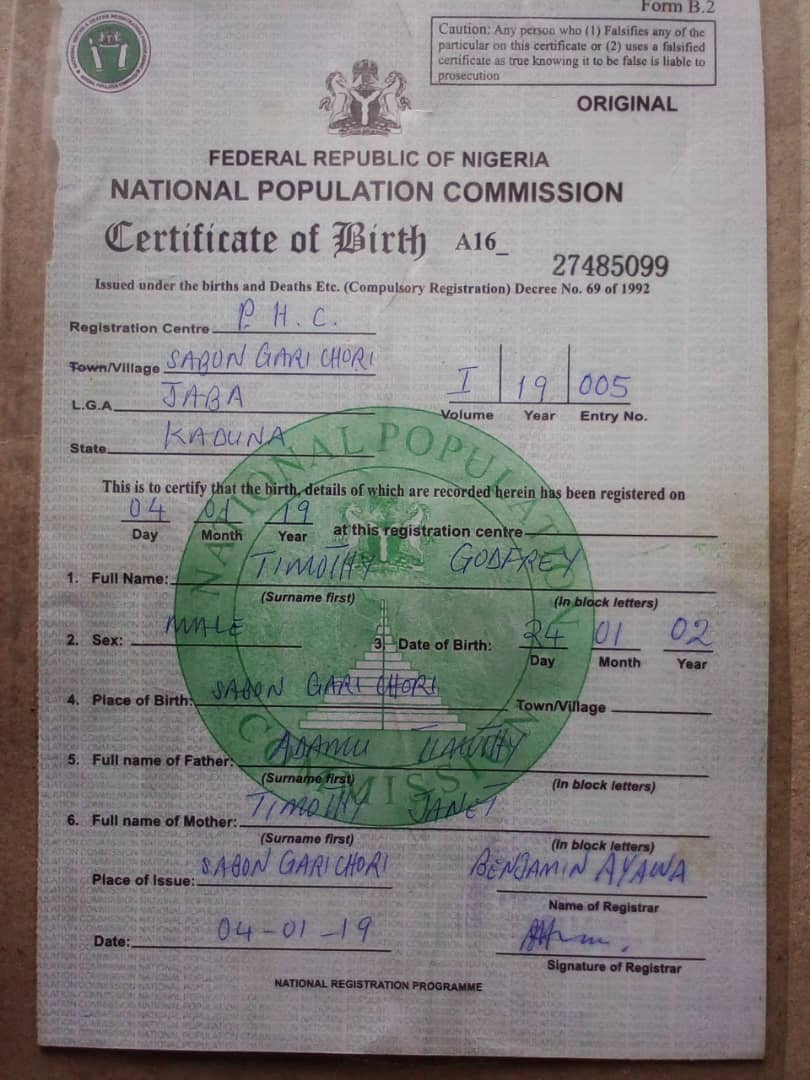 Form B.2
Caution: Any person who (1) Falsifies any of the
particular on this certificate or (2) uses a falsified
certificate as true knowing it to be false is liable to
prosecution
ORIGINAL
FEDERAL REPUBLIC OF NIGERIA
NATIONAL POPULATION COMMISSION
Certificate of Birth A16_
27485099
Issued under the births and Deaths Etc. (Compulsory Registration) Decree No. 69 of 1992
Registration Centre P. H. C.
Town/Village SABON GARI CHORI
L.G.A JABA
I 19 005
Volume Year Entry No.
State KADUNA
NATIONAL POPULATION COMMISSION
This is to certify that the birth, details of which are recorded herein has been registered on
04 01 19
Day Month Year at this registration centre
1. Full Name: TIMOTHY GODFREY
(Surname first) (In block letters)
2. Sex: MALE 3. Date of Birth: 24 01 02
Day Month Year
4. Place of Birth: SABON GARI CHORI Town/Village
5. Full name of Father: ADAMU TIMOTHY
(Surname first) (In block letters)
6. Full name of Mother: TIMOTHY JANET
(Surname first) (In block letters)
Place of Issue: SABON GARI CHORI BENJAMIN AYAWA
Name of Registrar
Date: 04-01-19
Signature of Registrar
NATIONAL REGISTRATION PROGRAMME